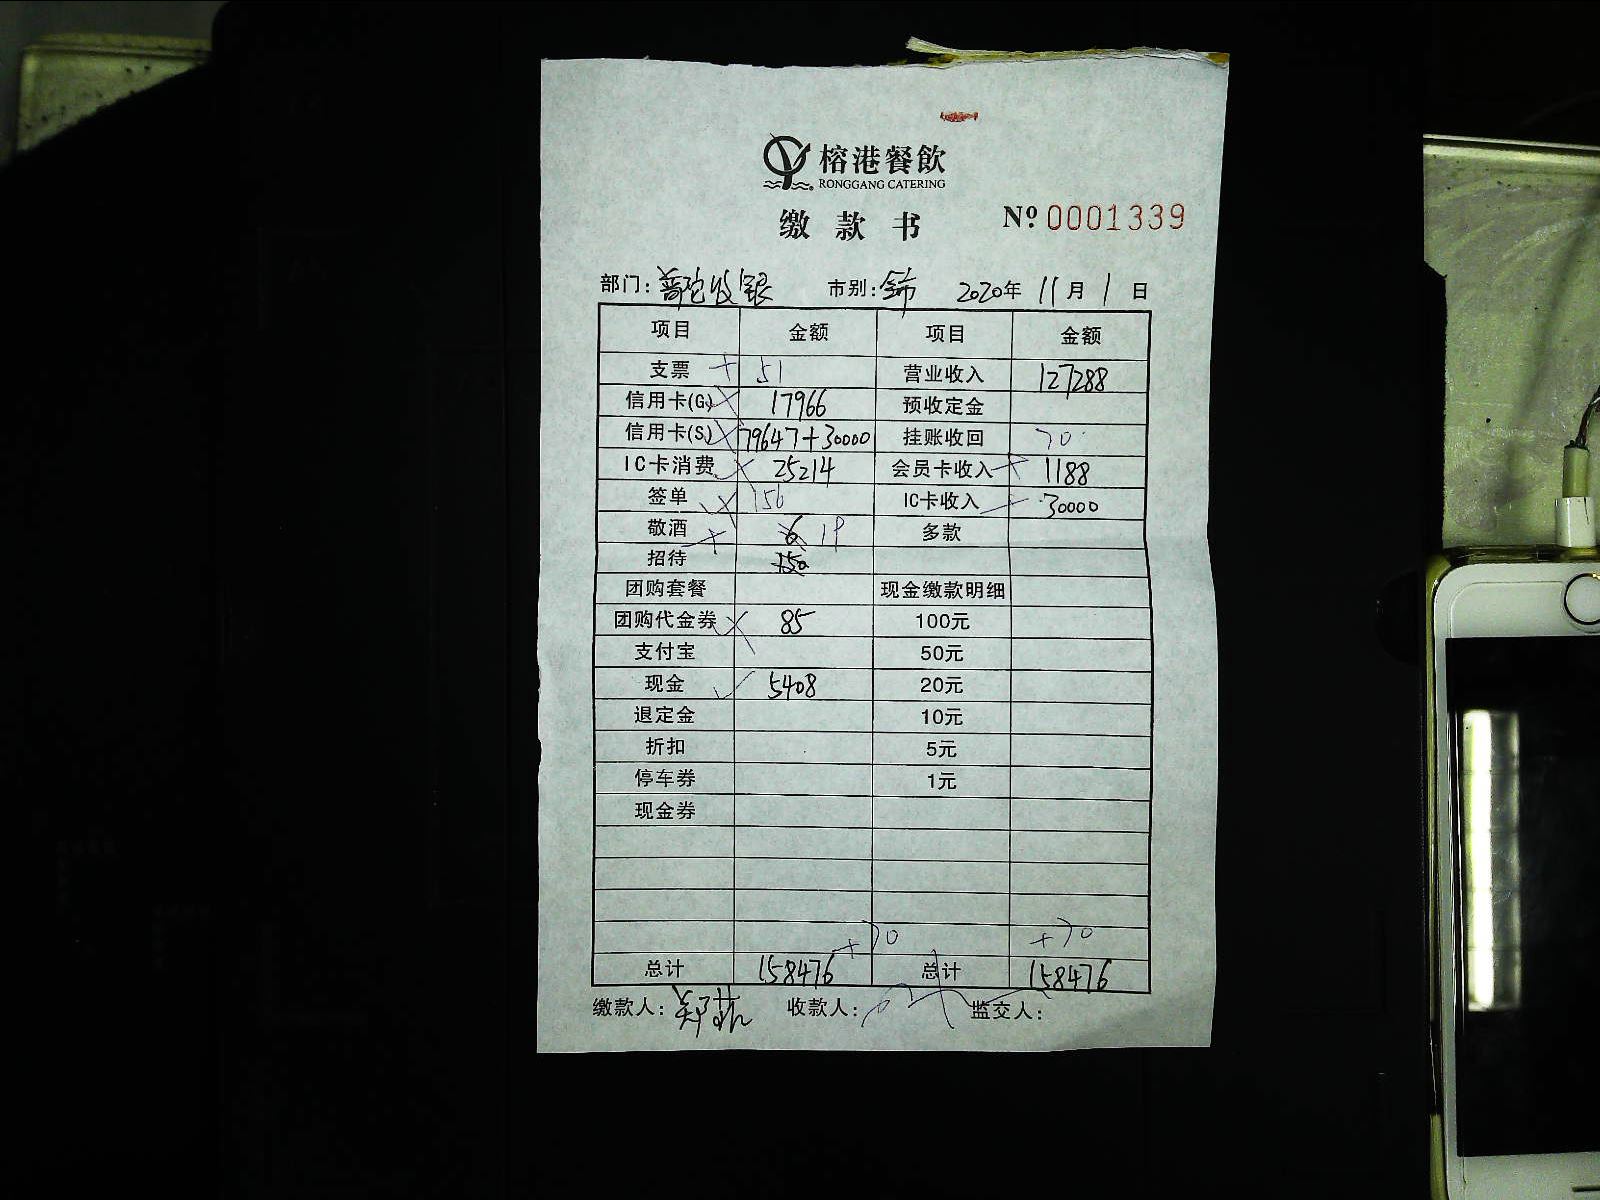 榕港餐飲
RONGGANG CATERING
缴款书 Nº 0001339
部门: 普陀收银 市别: 全市 2020年 11月 1日
项目 金额 项目 金额
支票 51 营业收入 127288
信用卡(G) 17966 预收定金
信用卡(S) 79647+30000 挂账收回 70
IC卡消费 25214 会员卡收入 1188
签单 156 IC卡收入 30000
敬酒 6 19 多款
招待 150
团购套餐 现金缴款明细
团购代金券 85 100元
支付宝 50元
现金 5408 20元
退定金 10元
折扣 5元
停车券 1元
现金券
+70 +70
总计 158476 总计 158476
缴款人: 收款人: 监交人: